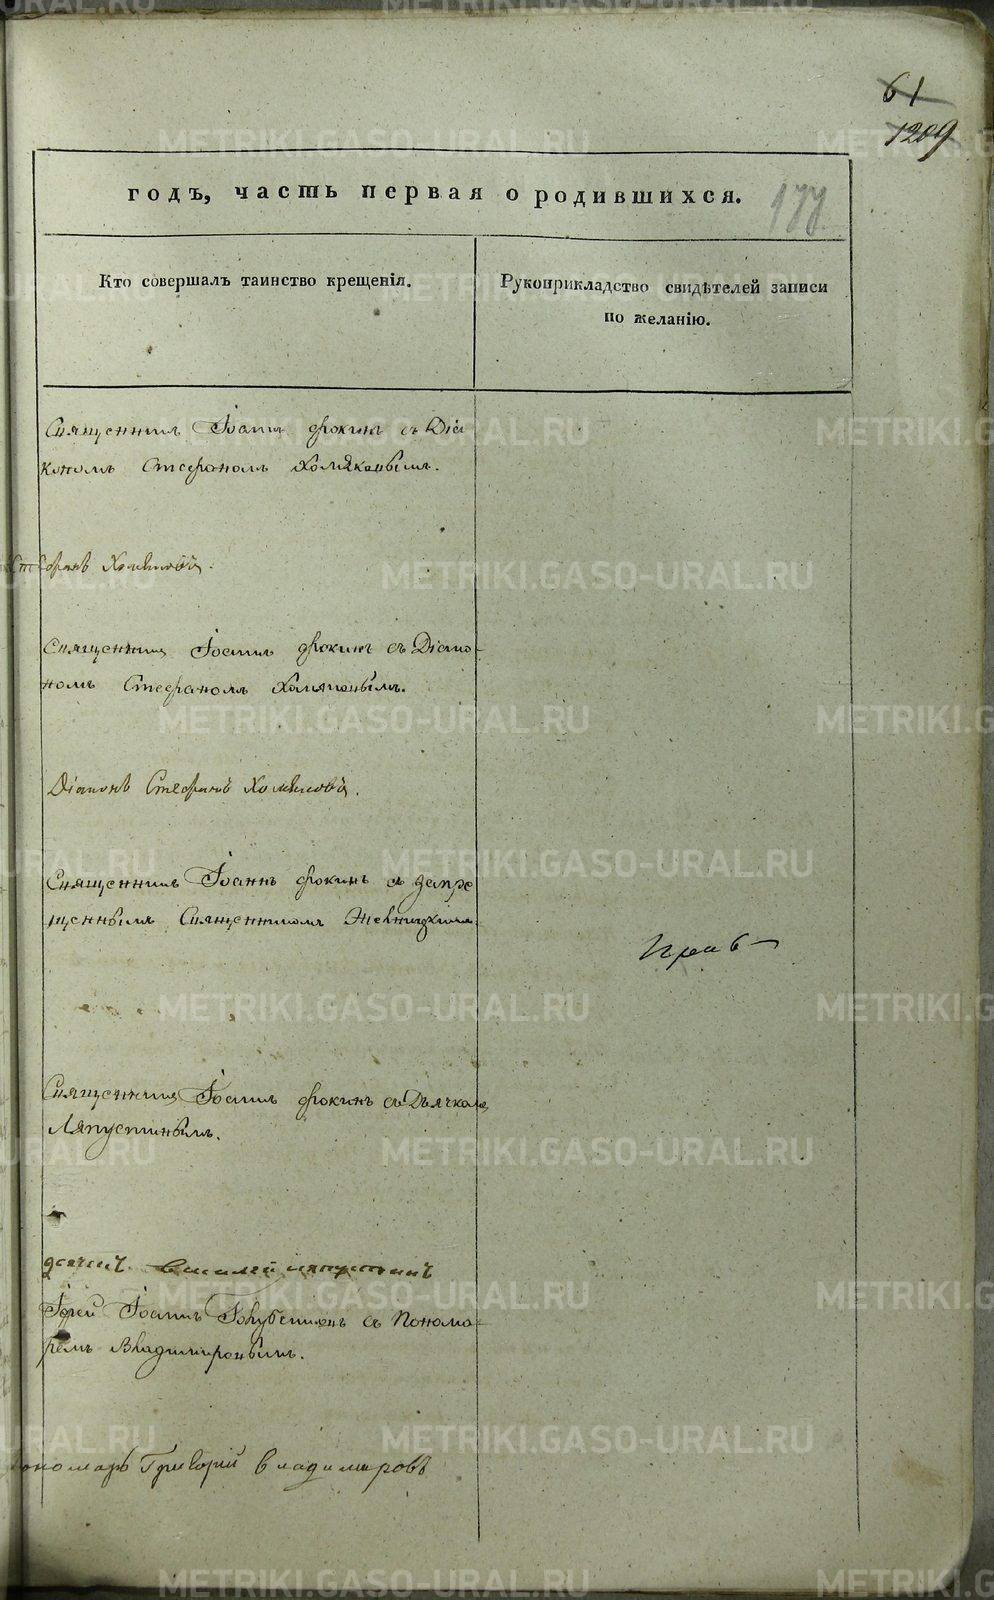 61
1209
годъ, часть первая о родившихся.
177
Кто совершалъ таинство крещенія.
Рукоприкладство свидѣтелей записи
по желанію.
Священникъ Іоаннъ Фокинъ съ Діа
кономъ Стефаномъ Хомяковымъ.
Стефанъ Хомяковъ.
Священникъ Іоаннъ Фокинъ съ Діако-
номъ Стефаномъ Хомяковымъ.
Діаконъ Стефанъ Хомяковъ.
Священникъ Іоаннъ Фокинъ съ запре
щеннымъ Священникомъ
Священникъ Іоаннъ Фокинъ съ Дьячкомъ
Ляпустинымъ.
дьячекъ Василей Ляпустинъ
Іерей Іоаннъ Голубчиковъ съ Понома-
ремъ Владимировымъ.
Пономарь Григорій Владимировъ
METRIKI.GASO-URAL.RU